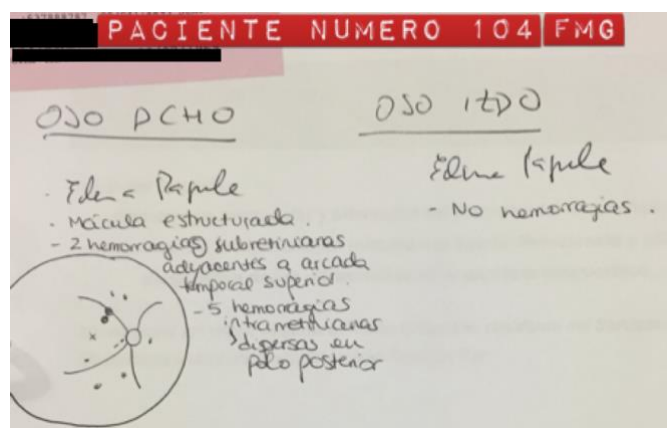 PACIENTE NUMERO 104 FMG
OJO DCHO
- Edema Papila
- Mácula estructurada.
- 2 hemorragias subretinianas
adyacentes a arcada
temporal superior.
- 5 hemorragias
intrarretinianas
dispersas en
polo posterior
OJO IZDO
Edema Papila
- No hemorragias.